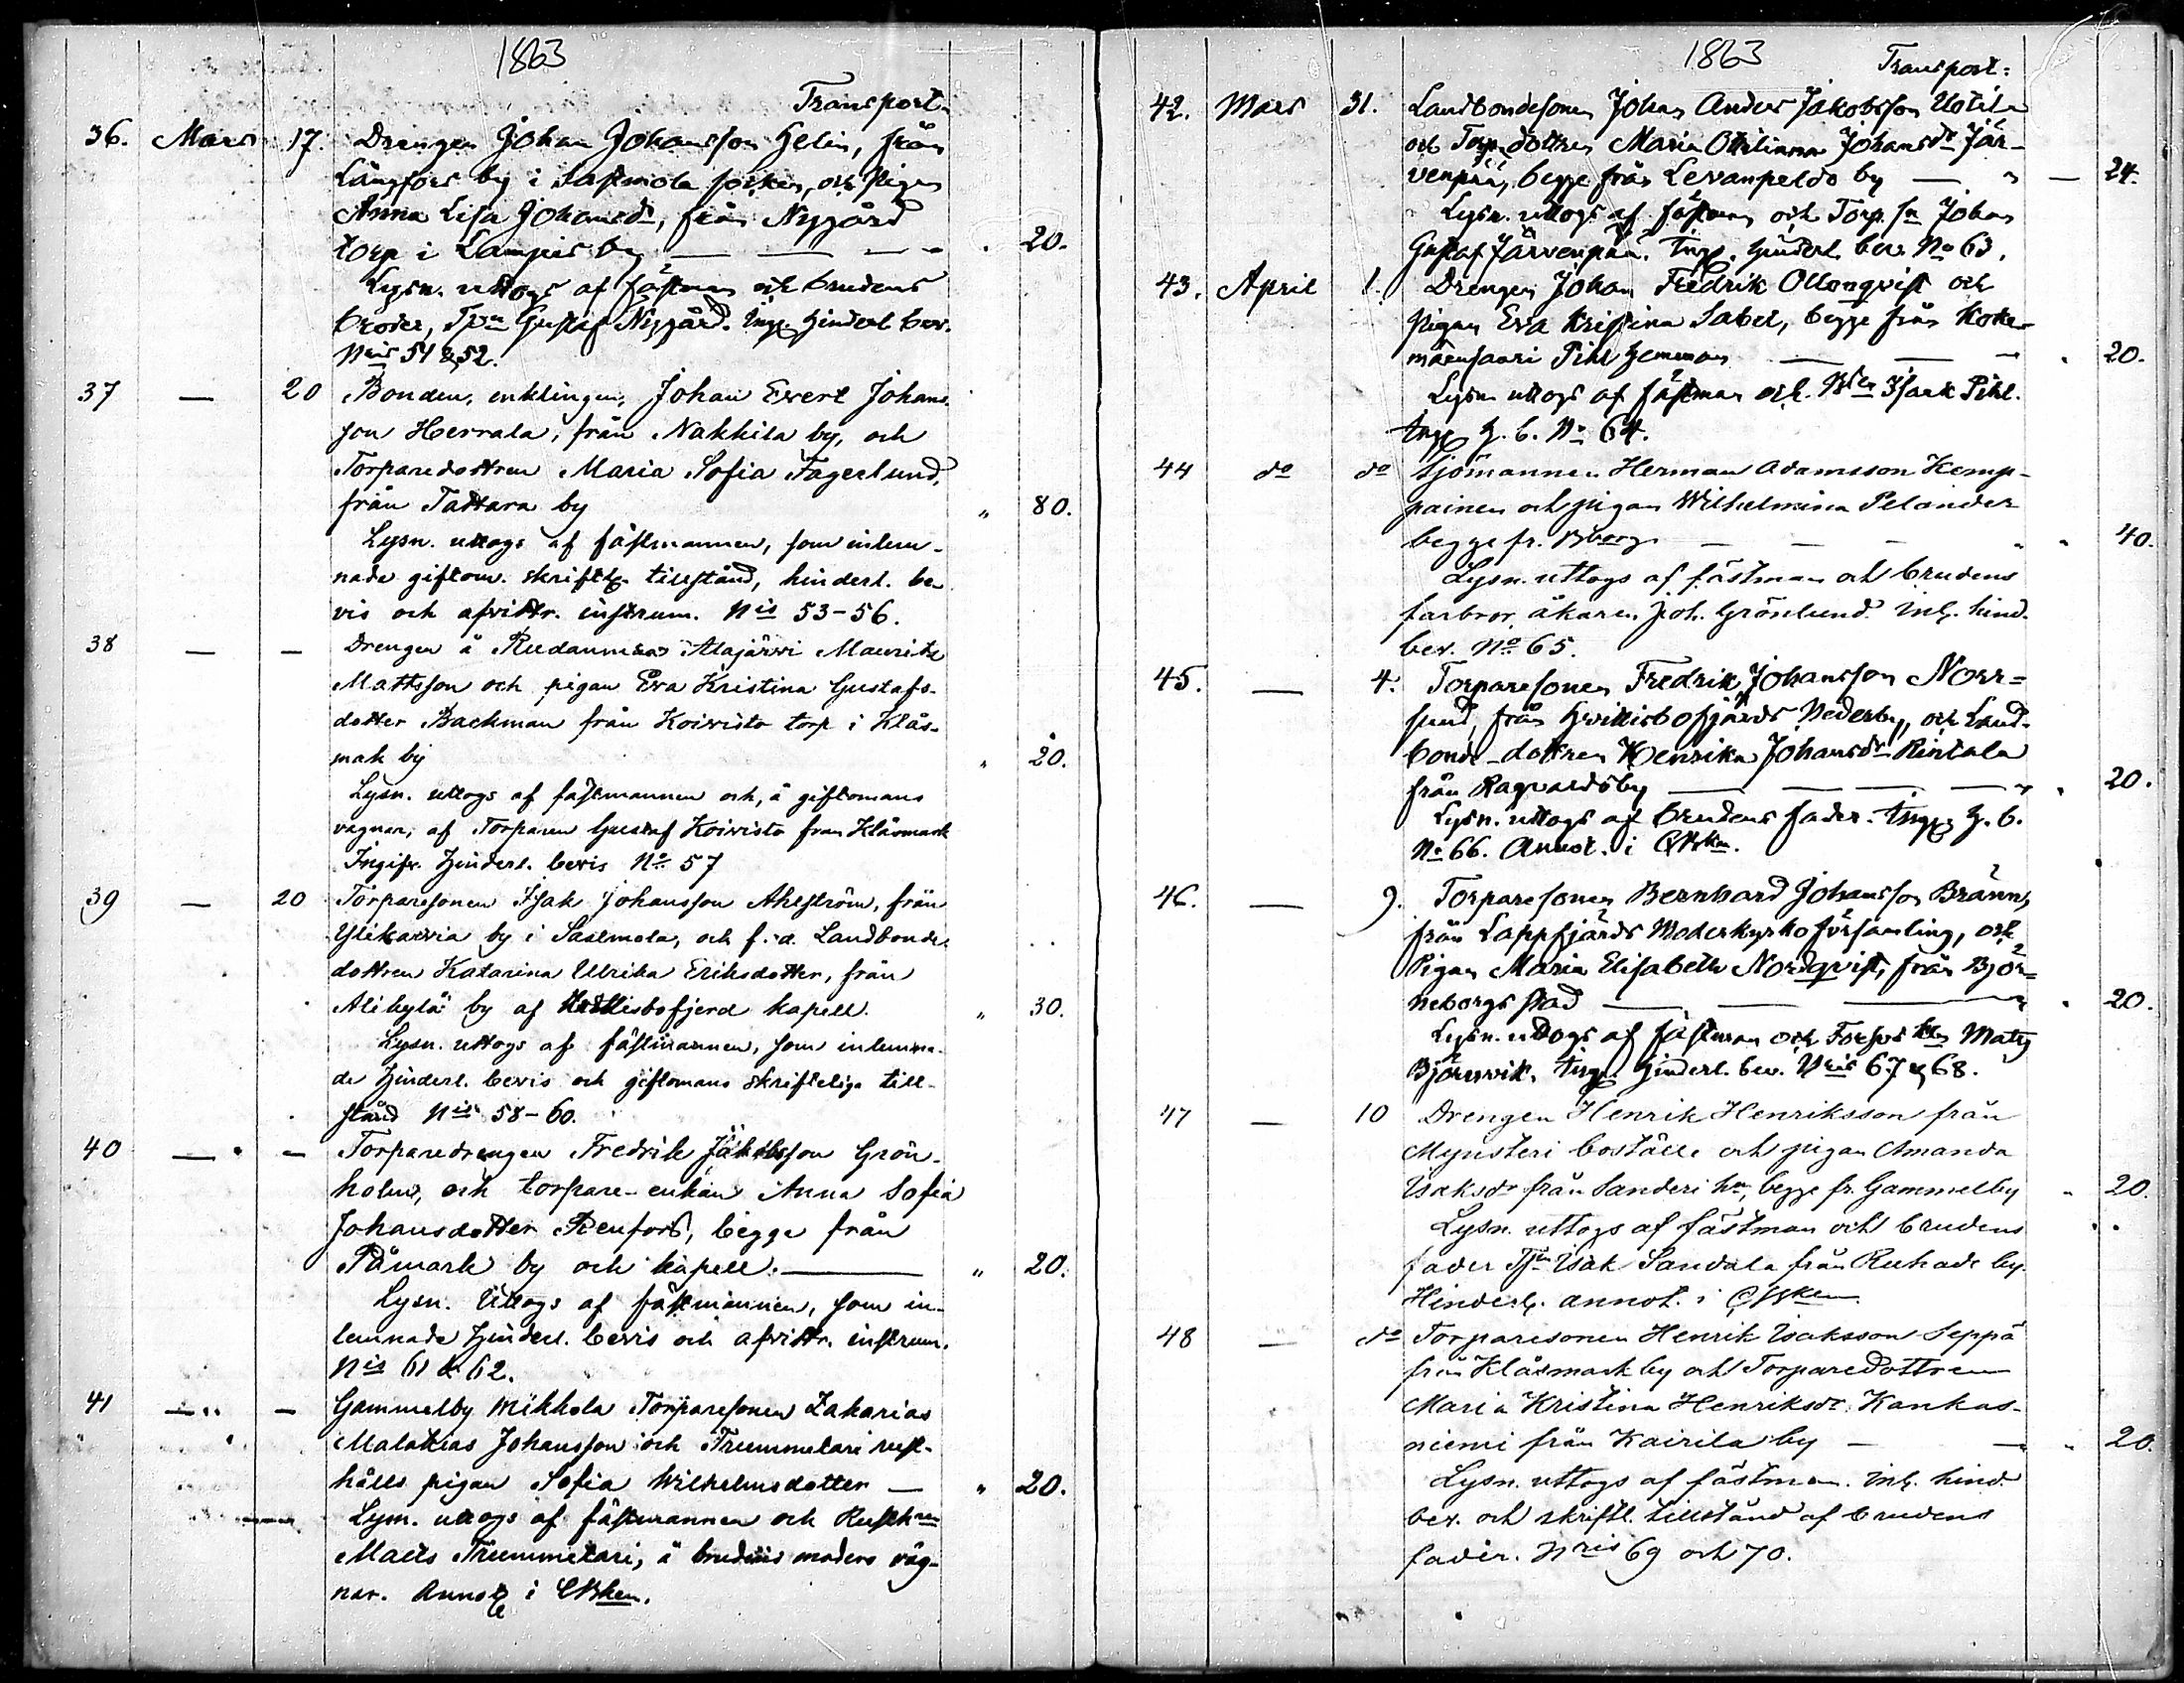 1863
Transport
36. Mars 17. Drengen Johan Johansson Helin, från
Långfors by i Sastmola socken, och Pigan
Anna Lisa Johansdr, från Nygård
torp i Lampis by — — — " 20.
Lysn. uttogs af fästman och brudens
broder, Tpn Gustaf Nygård. Ingg. Hinderl. bev.
Nris 51 & 52.
37 — 20 Bonden, enklingen, Johan Evert Johans-
son Herrala, från Nakkila by, och
Torparedottren Maria Sofia Fagerlund,
från Tattara by " 80.
Lysn. uttogs af fästmannen, som inlem-
nade giftom. skriftl. tillstånd, hinderl. be-
vis och afvittr. instrum. Nis 53-56.
38 — — Drengen å Rudanmaa i Alajärvi Mauritz
Mattsson och pigan Eva Kristina Gustafs-
dotter Backman från Koivisto torp i Klås-
mark by " 20.
Lysn. uttogs af fästmannen och, å giftomans
vagnar, af Torparen Gustaf Koivisto från Klåsmark
Ingifv. Hinderl. bevis No 57
39 — 20 Torparesonen Isak Johansson Ahlström, från
Ylikarvia by i Sastmola, och f.d. Landbonde-
dottren Katarina Ulrika Eriksdotter, från
Alikylä by af Hvittisbofjerd kapell. " 30.
Lysn. uttogs af fästmannen, som inlemna-
de Hinderl. bevis och giftomans skriftliga till-
stånd Nis 58-60.
40 — — Torparedrengen Fredrik Jakobsson Grön-
holm, och torpare-enkan Anna Sofia
Johansdotter Renfors, begge från
Påmark by och kapell. — " 20.
Lysn. Uttogs af fästmannen, som in-
lemnade Hinderl. bevis och afvittr. instrum.
Nis 61 & 62.
41 — — Gammelby Mikkola Torparesonen Zakarias
Malakias Johansson och Trummetari rust-
hålls pigan Sofia Wilhelmsdotter — " 20.
Lysn. uttogs af fästmannen och Rusthn
Matts Trummetari, å brudens moders väg-
nar. Annot i CBken.
1863
Transport:
42. Mars 31. Landbondesonen Johan Anders Jakobsson Uotila
och Torp. dottren Maria Ottilianna Johansdr Jär-
venpää, begge från Levanpeldo by — " — 24.
Lysn. uttogs af fästman och Torp. sn Johan
Gustaf Järvenpää. Ingg. Hinderl. bev. No 63.
43. April 1. Drengen Johan Fredrik Ollonqvist och
Pigan Eva Kristina Sabel, begge från Koke-
mäensaari Pihl hemman — — — " 20.
Lysn uttogs af fästman och Bden Isaak Pihl.
Ingg H. b. No 64.
44 do do Sjömannen Herman Adamsson Kemp-
painen och pigan Wilhelmina Pelander
begge fr. Bborg. — — — " " 40.
Lysn. uttogs af fästman och brudens
farbror, åkaren Joh. Grönlund. Inl. hind.
bev. No 65.
45. — 4. Torparesonen Fredrik Johansson Norr=
lund, från Hvittisbofjärds Nederby, och Land-
bonde-dottren Henrika Johansdr Rintala
från Ragvardsby — — — — " 20.
Lysn. uttogs af brudens fader. Ingg H. b.
No 66. Annot. i CBken.
46. — 9. Torparesonen Bernhard Johansson Bränn,
från Lappfjärds Moderkyrko församling, och
Pigan Maria Elisabeth Nordqvist, från Björ=
neborgs stad — — — " 20.
Lysn. uttogs af fästman och Matts
Björnvik. Ingl. Hinderl. bev. Nris 67 & 68.
47 — 10 Drengen Henrik Henriksson från
Mynsteri boställe och pigan Amanda
Isaksdr från Sanderi hn, begge fr. Gammelby " 20.
Lysn. uttogs af fästman och brudens
fader Tjn Isak Sandala från Ruhade by.
Hinderl. annot. i CBken.
48 — do Torparesonen Henrik Isaksson Seppä
från Klåsmark by och Torparedottren
Maria Kristina Henriksdr. Kankas-
niemi från Kairila by — — " 20.
Lysn. uttogs af fästman. Inl. hind.
bev. och skriftl. tillstånd af brudens
fader. Nris 69 och 70.